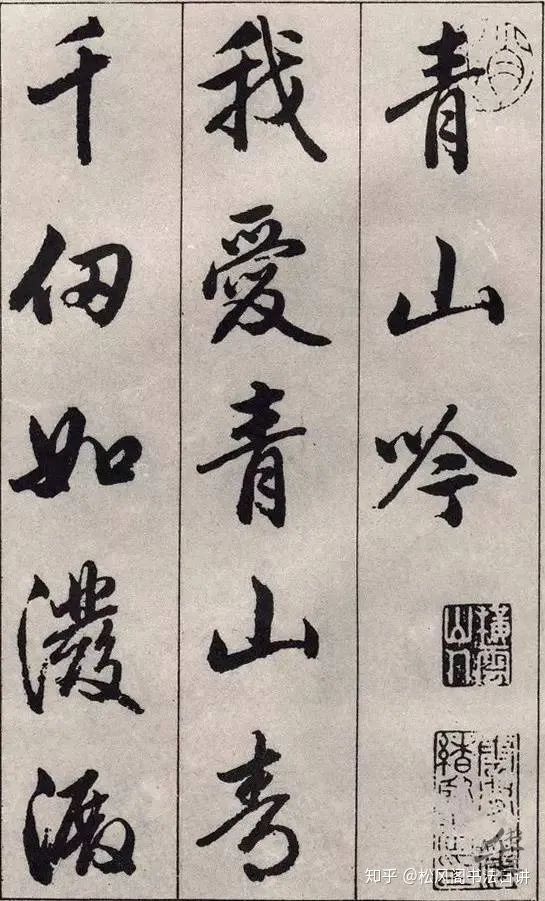 青山吟
我愛青山青
千仞如潑
橫雲山人
知乎 @松风阁书法日讲